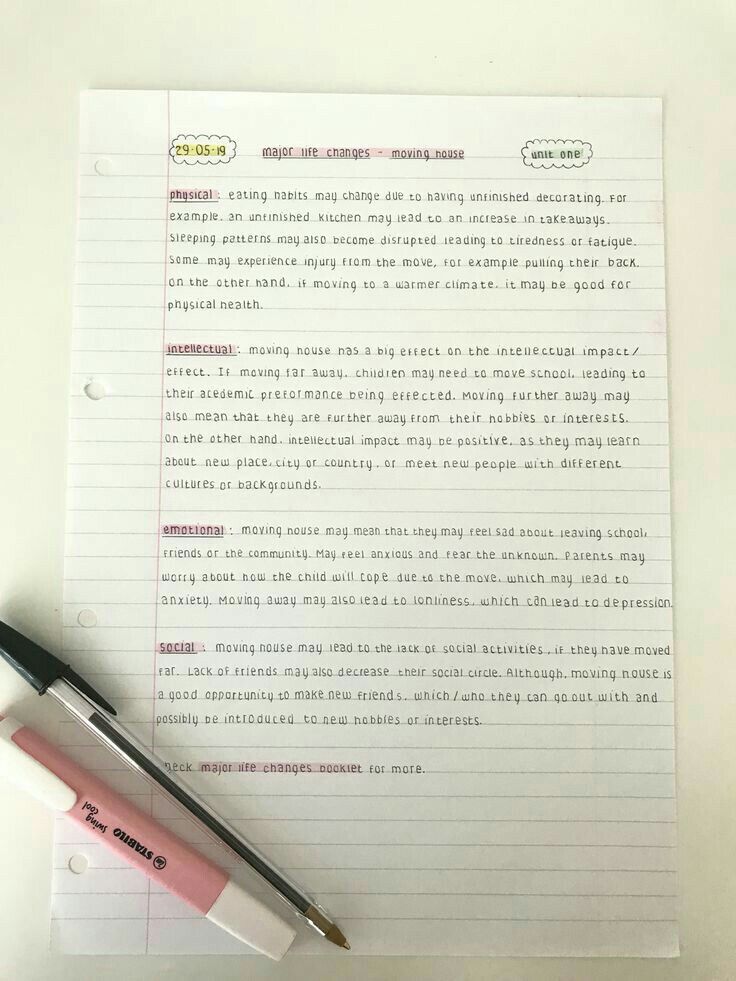 29·05·19 major life changes - moving house unit one
physical: eating habits may change due to having unfinished decorating. For
example, an unfinished kitchen may lead to an increase in takeaways.
Sleeping patterns may also become disrupted leading to tiredness or fatigue.
Some may experience injury from the move, for example pulling their back.
On the other hand, if moving to a warmer climate, it may be good for
physical health.
intellectual: moving house has a big effect on the intellectual impact/
effect. If moving far away, children may need to move school, leading to
their acedemic preformance being effected. Moving further away may
also mean that they are further away from their hobbies or interests.
On the other hand, intellectual impact may be positive, as they may learn
about new place, city or country, or meet new people with different
cultures or backgrounds.
emotional: moving house may mean that they may feel sad about leaving school,
friends or the community. May feel anxious and fear the unknown. Parents may
worry about how the child will cope due to the move, which may lead to
anxiety. Moving away may also lead to lonliness, which can lead to depression.
social: moving house may lead to the lack of social activities, if they have moved
far. Lack of friends may also decrease their social circle. Although, moving house is
a good opportunity to make new friends, which/who they can go out with and
possibly be introduced to new hobbies or interests.
heck major life changes booklet for more.
STABILO
swing
cool